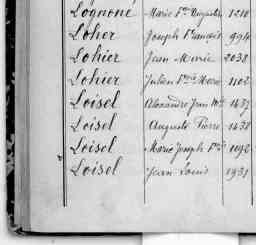 Lognoné Marie Fse Augustine 1210
Loher Joseph François 994
Lohier Jean Marie 2038
Lohier Julien Pre Marie 1102
Loisel Alexandre Jean Mie 1437
Loisel Auguste Pierre 1438
Loisel Marie Joseph Fse 1092
Loisel Jean Louis 1931